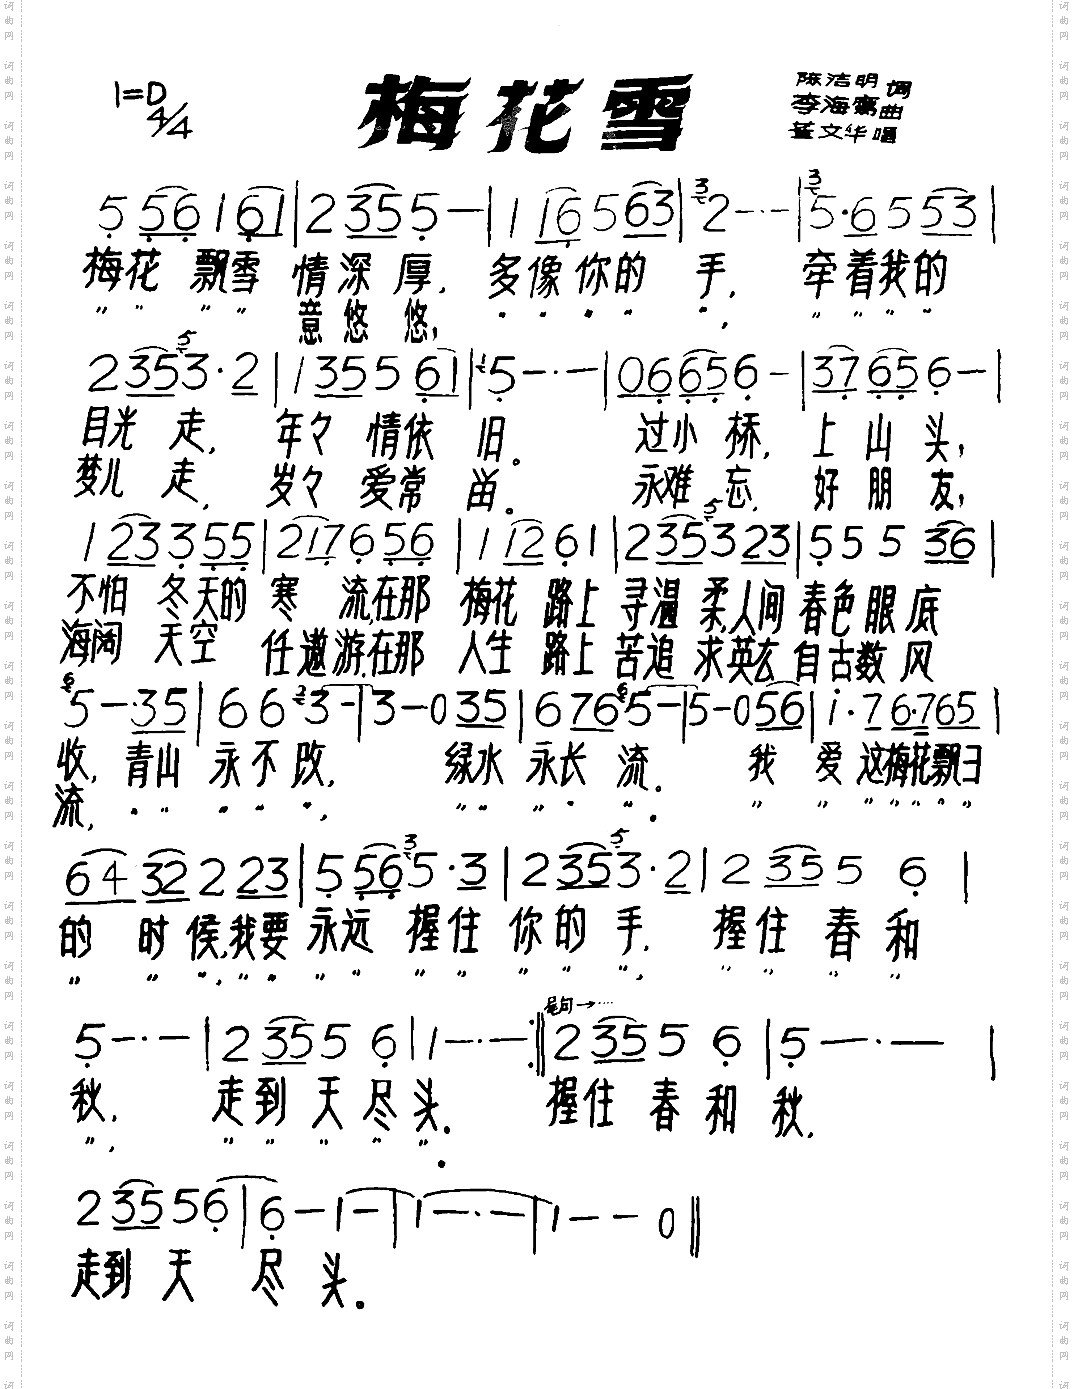 1=D 4/4
梅花雪
陈洁明 词
李海鹰 曲
董文华 唱
5 56 1 61 | 2 35 5 — | 1 16 5 63 | 3 2 — · — | 3 5 · 6 5 53 |
梅花 飘雪 情深 厚, 多像你的 手, 牵着我的
〃 〃 〃 〃 意悠 悠, 〃 〃 〃 〃 〃, 〃 〃 〃 〃
2 35 5 3 · 2 | 1 35 5 61 | 1 5 — · — | 06 65 6 — | 37 65 6 — |
目光 走, 年々 情依 旧。 过小 桥, 上 山 头,
梦儿 走, 岁々 爱常 留。 永难 忘, 好 朋 友,
1 23 3 55 | 2 17 6 56 | 1 12 6 1 | 2 35 5 3 23 | 5 5 5 36 |
不怕 冬天的 寒 流,在那 梅花 路上 寻温 柔,人间 春色眼 底
海阔 天空 任遨游,在那 人生 路上 苦追 求,英玄 自古数 风
6 5 — · 35 | 6 6 2 3 — | 3 — 0 35 | 6 76 6 5 — | 5 — 0 56 | i · 7 6·765 |
收, 青山 永不 改, 绿水 永长 流。 我 爱 这梅花飘彐
流, 〃 〃 〃 〃 〃, 〃 〃 〃 〃。 〃 〃 〃 〃 〃 〃 〃
64 32 2 23 | 5 56 3 5 · 3 | 2 35 5 3 · 2 | 2 35 5 6 |
的 时 候,我要 永远 握住 你的 手, 握住 春 和
〃 〃 〃,〃 〃 〃 〃 〃 〃 〃 〃 〃, 〃 〃 〃 〃
尾句→····
5 — · — | 2 35 5 6 | 1 — · — :‖ 2 35 5 6 | 5 — · — |
秋, 走到 天 尽 头。 握住 春 和 秋,
〃, 〃 〃 〃 〃 〃。
2 35 5 6 | 6 — 1 — | 1 — · — | 1 — — 0 ‖
走到 天 尽 头。